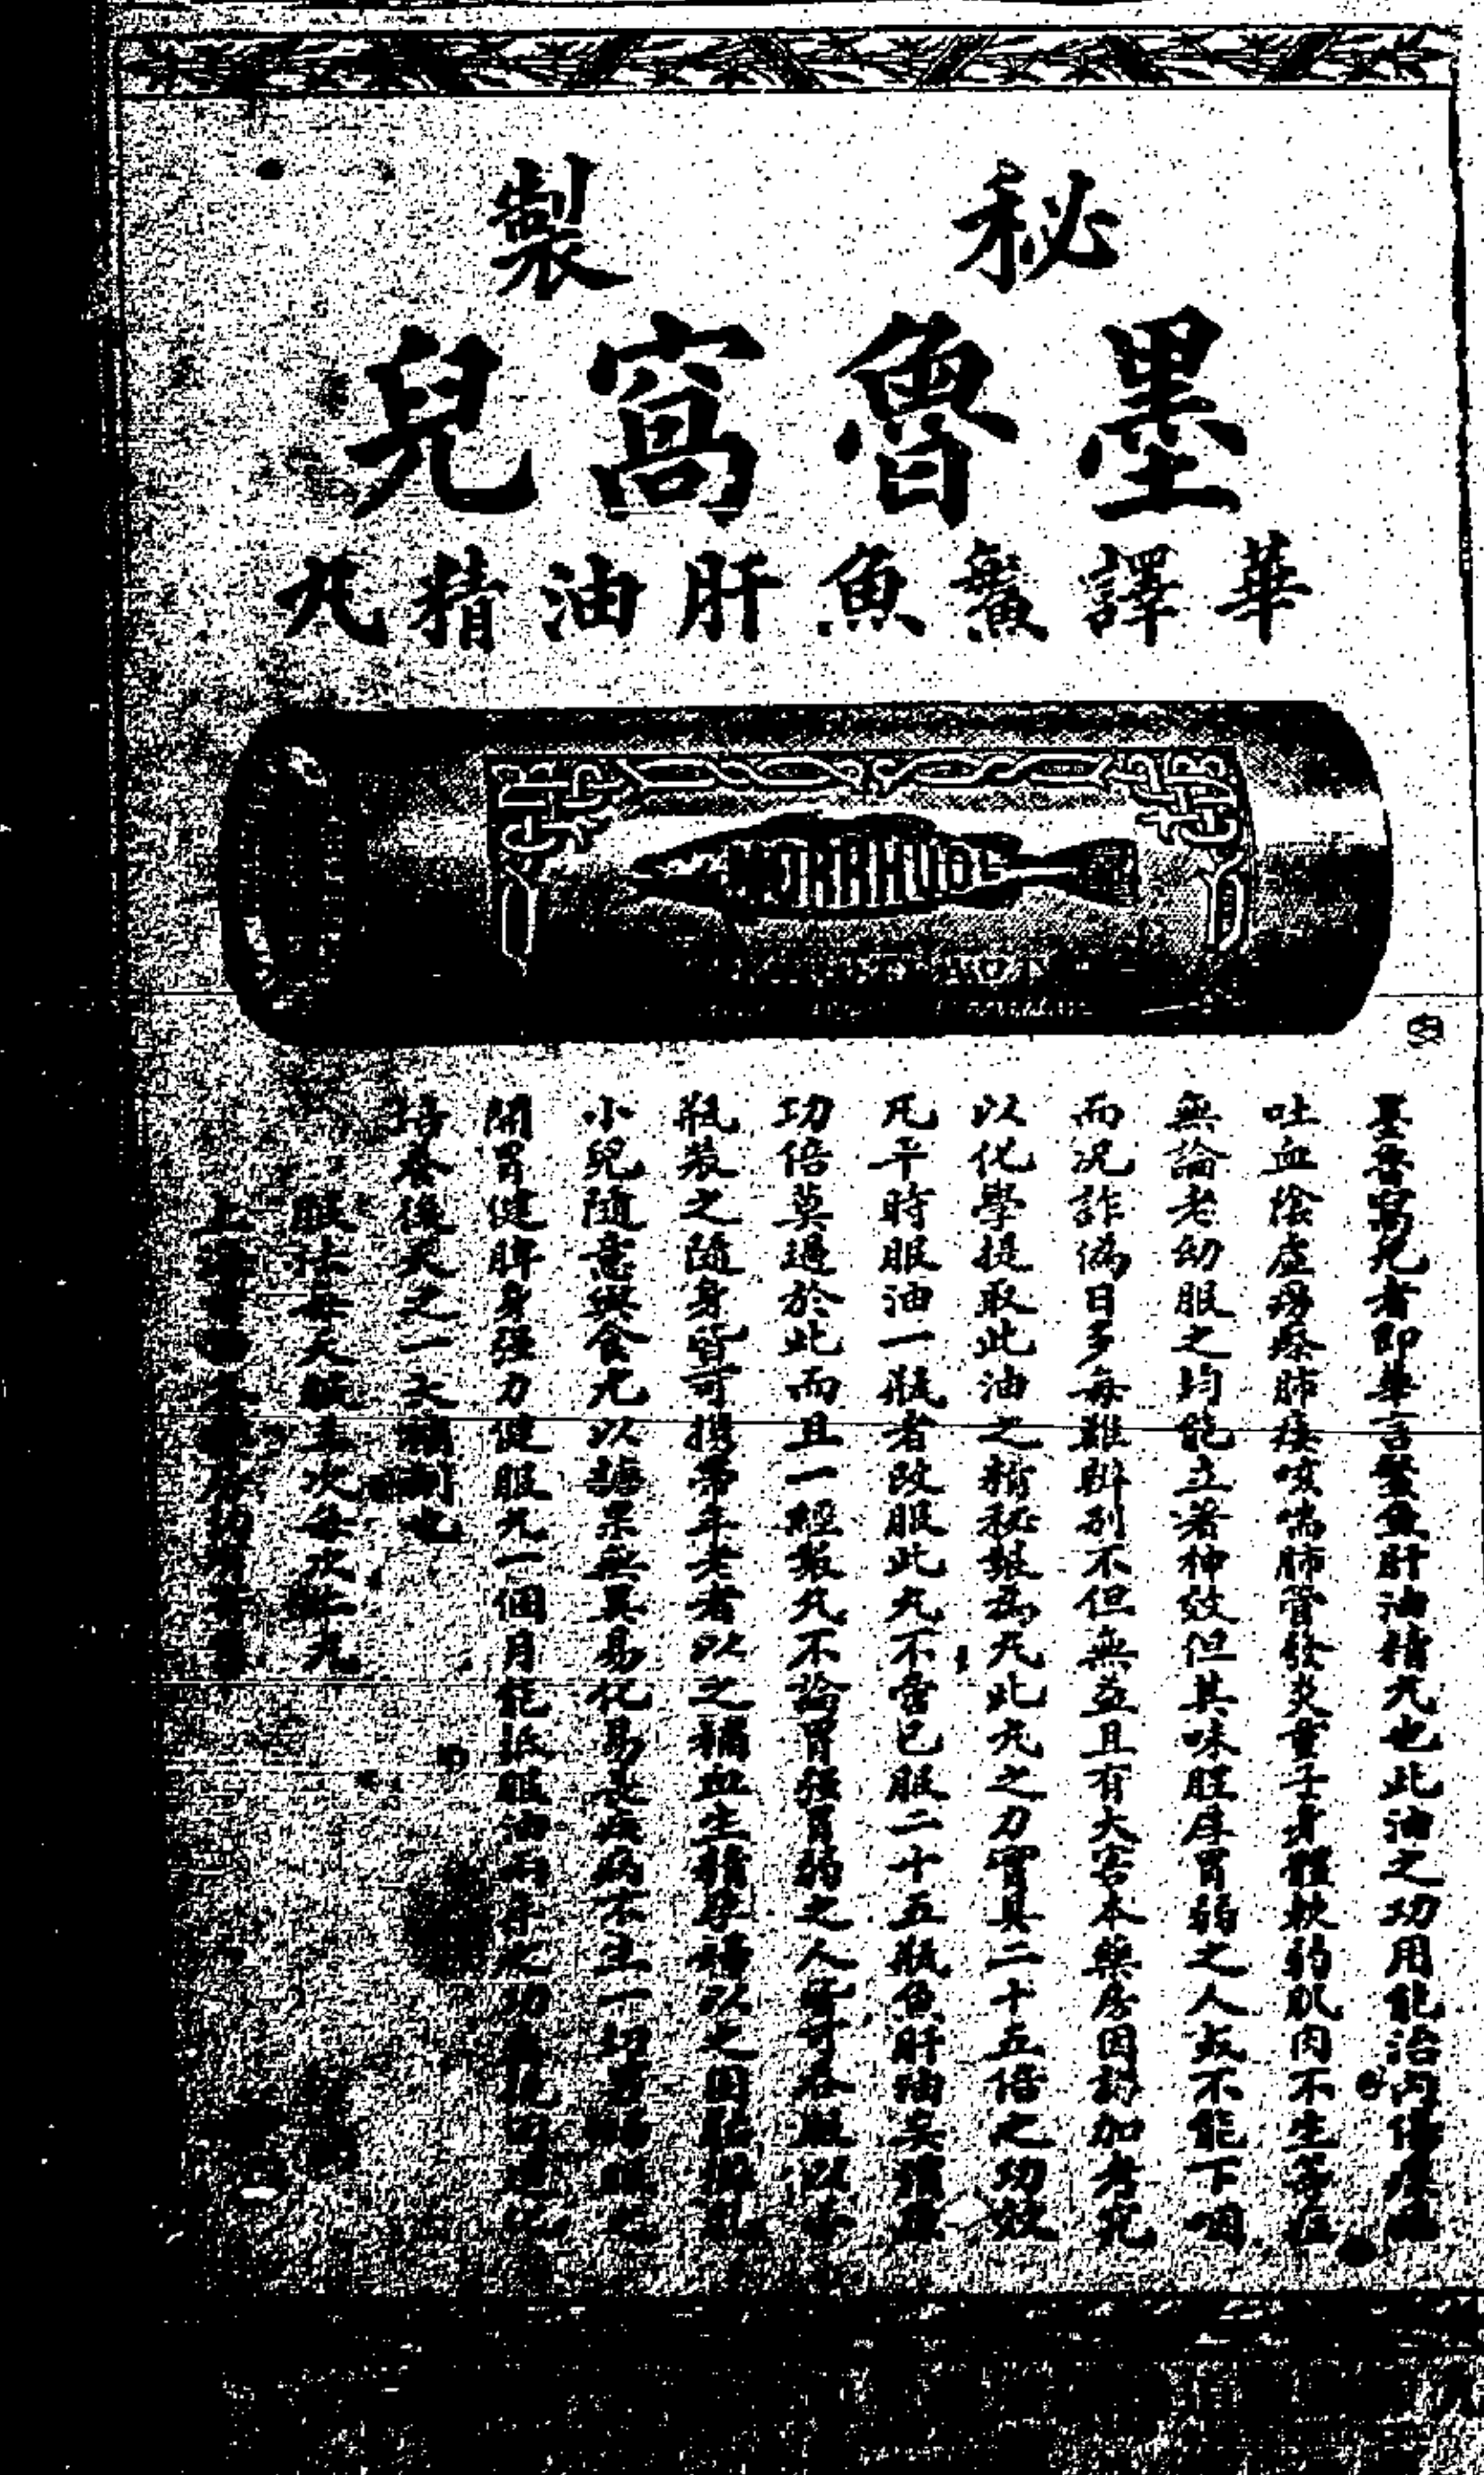 秘製
墨魯窩兒
華譯鰵魚肝油精丸
MORRHUOL
墨魯窩兒者即華言鰵魚肝油精丸也此油之功用能治內傷
吐血陰虛癆瘵肺痿咳喘肺管發炎童子身體軟弱肌肉不生等症
無論老幼服之均能立著神效但其味腥厚胃弱之人或不能下咽
而况詐偽日多每難辦別不但無益且有大害本藥房因詳加考究
以化學提取此油之精秘製為丸此丸之力實具二十五倍之功效
凡平時服油一瓶者改服此丸不啻已服二十五瓶魚肝油矣
功倍莫過於此而且一經製丸不論胃強胃弱之人皆可吞服以
瓶裝之隨身皆可攜帶年老者以之補血生精孕婦以之固胎
小兒隨意與食尤以糖果無異易化易長疾病不生一切
開胃健脾身强力健服丸一個月能抵服油兩年之功
培養後天之一大補劑也
服法每天三次每次二丸